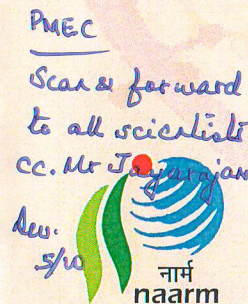 PMEC
Scan & forward
to all scientists
cc. Mr Jayarajan
5/10
नार्म
naarm